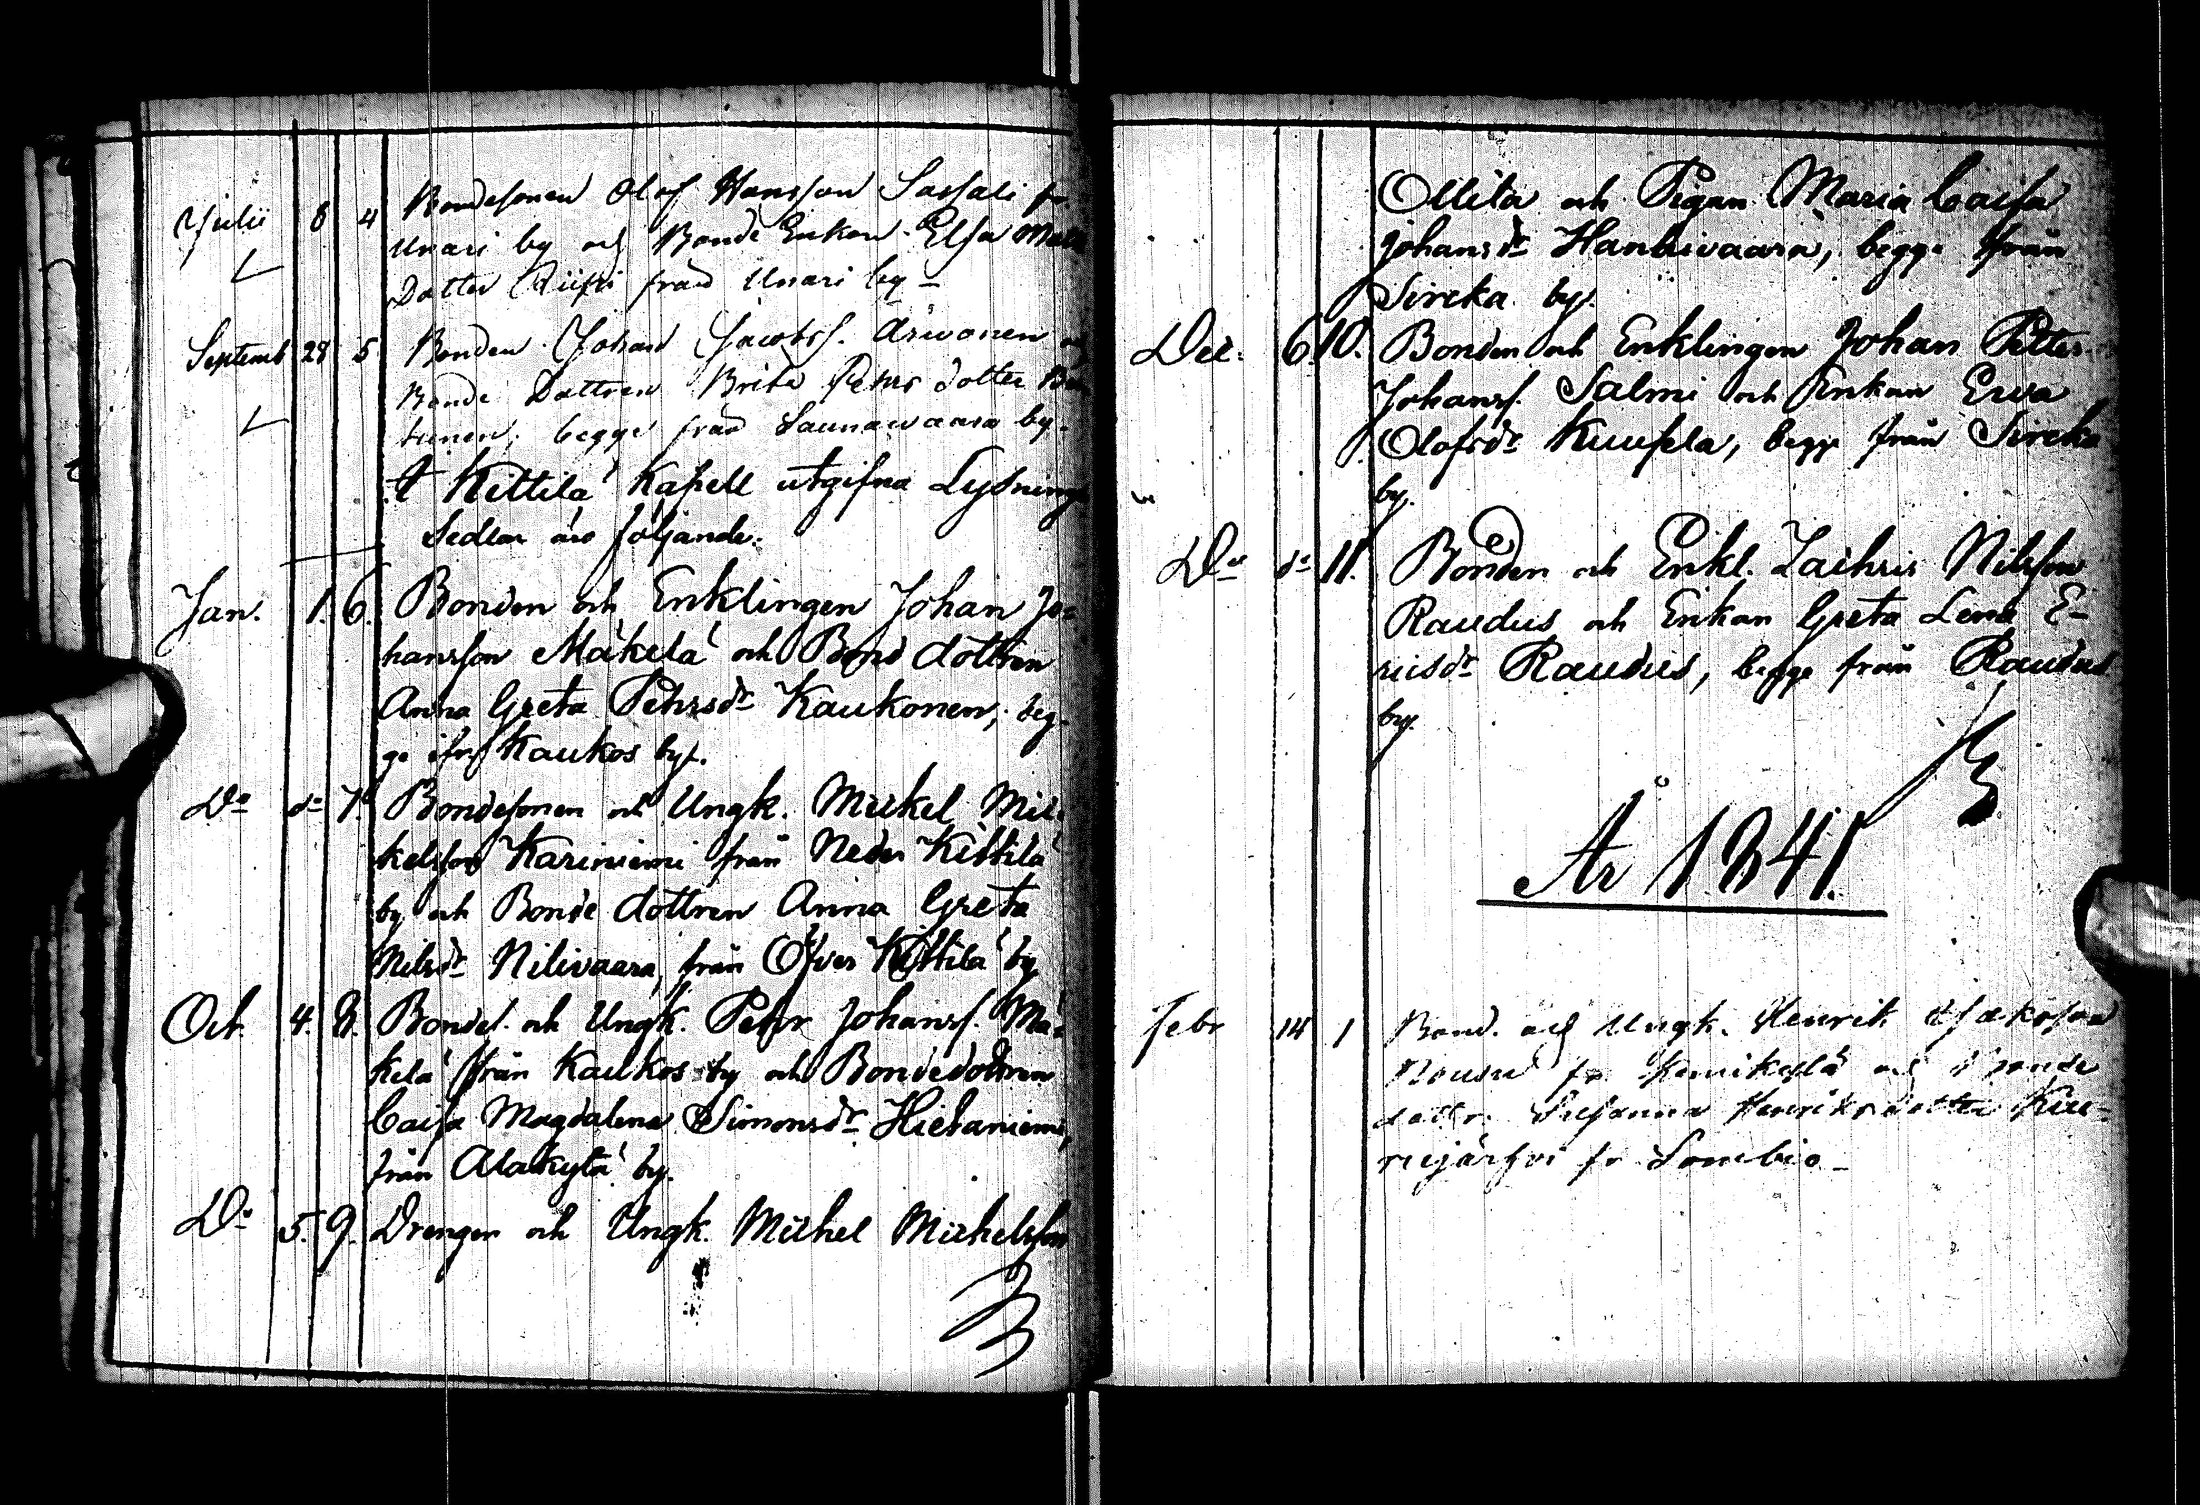 Julii 8 4 Bondesonen Olof Hansson Sassali fr.
Unari by och Bonde Enkan Elsa
Dotter Riipi från Unari by
Septemb 28 5 Bonden Johan Jacobss. Arwonen
Bonde Dottren Brita Pehrs dotter
tunen, begge från Saunawaara by.
I Kittilä Kapell utgifna Lysnings
Sedlar äro följande.
Jan. 1. 6. Bonden och Enklingen Johan Jo=
hansson Mäkelä och Bond dottren
Anna Greta Pehrsdr Kaukonen, beg-
ge ifr Kaukos by.
Do do 7. Bondesonen och Ungk. Mickel Mic-
kelsson Kariniemi från Neder Kittilä
by och Bonde dottren Anna Greta
Nilsdr Nilivaara, från Öfver Kittilä by
Oct. 4. 8. Bondes. och Ungk. Pehr Johanss. Mä-
kelä från Kaukos by och Bondedottren
Caisa Magdalena Simonsdr Hietaniemi,
från Alakylä by.
Do 5. 9. Drengen och Ungk. Michel Michelsson
Ollila och Pigan Maria Caisa
Johansdr Hanhivaara, begge från
Sireka by.
Dec. 6. 10. Bonden och Enklingen Johan Petter
Johanss. Salmi och Enkan Ewa
Olofsdr Kuusela, begge från Sireka
by.
Do do 11. Bonden och Enkl. Zachris Nilsson
Raudus och Enkan Greta Lena E-
ricsdr Raudus, begge från Raudus
by.
År 1841.
Febr 14 1 Bond. och Ungk. Henrik Isaksson
Rousu fr Kemikylä och Bonde
dottr. Susanna Henriksdotter Kie-
rijärfvi fr Sombio